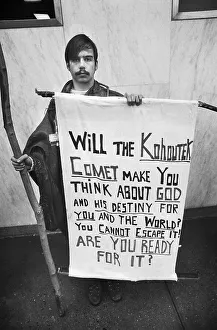 WILL THE KOHOUTEK
COMET MAKE YOU
THINK ABOUT GOD
AND HIS DESTINY FOR
YOU AND THE WORLD?
YOU CANNOT ESCAPE IT!
ARE YOU READY
FOR IT?